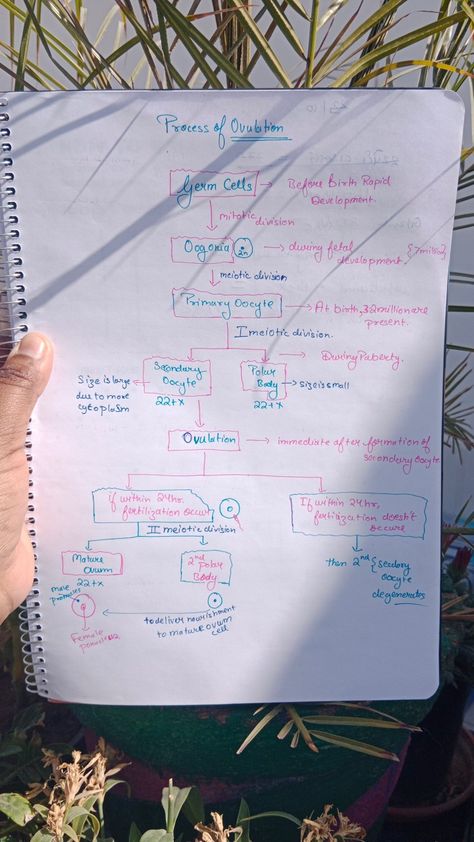 Process of Ovulation
Germ Cells → Before Birth Rapid
Development.
mitotic
division
Oogonia 2n → during fetal {7million}
development,
meiotic division
Primary Oocyte → At birth, 32million are
present.
I meiotic division.
Secondary
Oocyte
22+x
Size is large
due to more
cytoplasm
Polar
Body
22+x
→ size is small
→ During Puberty.
Ovulation → immediate after formation of
secondary oocyte
if within 24hr.
fertilization occur
II meiotic division
If within 24hr,
fertilization doesn't
occure
Mature
Ovum
22+x
2nd Polar
Body
then 2nd {secondary
oocyte
degenerates
male
Female
to deliver nourishment
to mature ovum
cell